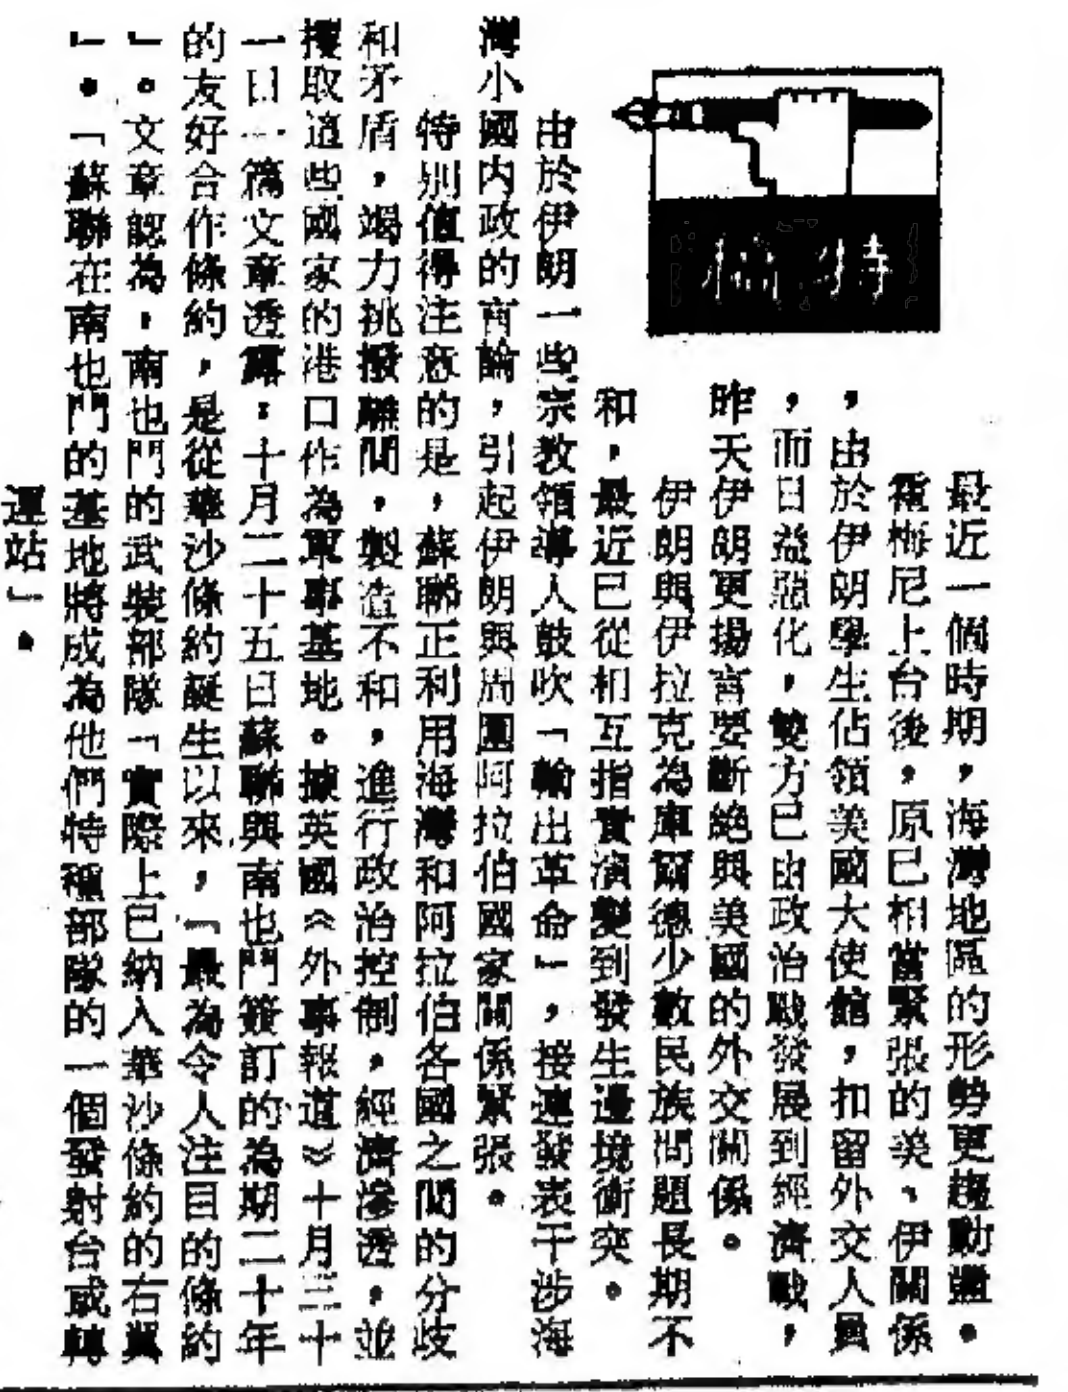 特稿
最近一個時期，海灣地區的形勢更趨動盪。
霍梅尼上台後，原已相當緊張的美、伊關係
，由於伊朗學生佔領美國大使館，扣留外交人員
，而日益惡化，雙方已由政治戰發展到經濟戰，
昨天伊朗更揚言要斷絕與美國的外交關係。
伊朗與伊拉克為庫爾德少數民族問題長期不
和，最近已從相互指責演變到發生邊境衝突。
由於伊朗一些宗教領導人鼓吹「輸出革命」，接連發表干涉海
灣小國內政的言論，引起伊朗與周圍阿拉伯國家關係緊張。
特別值得注意的是，蘇聯正利用海灣和阿拉伯各國之間的分歧
和矛盾，竭力挑撥離間，製造不和，進行政治控制，經濟滲透，並
攫取這些國家的港口作為軍事基地。據英國《外事報道》十月三十
一日一篇文章透露：十月二十五日蘇聯與南也門簽訂的為期二十年
的友好合作條約，是從華沙條約誕生以來，「最為令人注目的條約
」。文章認為，南也門的武裝部隊「實際上已納入華沙條約的右翼
」。「蘇聯在南也門的基地將成為他們特種部隊的一個發射台或轉
運站」。